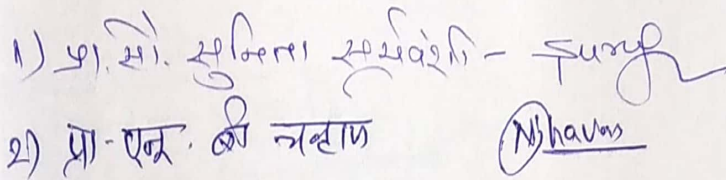 १) प्रा. सौ. सुनिता सूर्यवंशी -
२) प्रा - एन. बी चव्हाण